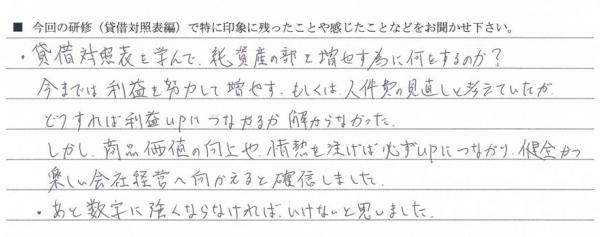 ■ 今回の研修（貸借対照表編）で特に印象に残ったことや感じたことなどをお聞かせ下さい。
・貸借対照表を学んで、純資産の部を増やす為に何をするのか？
今までは利益を努力して増やす、もしくは、人件費の見直しと考えていたが
どうすれば利益upにつながるか解からなかった。
しかし、商品価値の向上や、情熱を注げば必ずupにつながり、健全かつ
楽しい会社経営へ向かえると確信しました。
・あと数字に強くならなければ、いけないと思いました。